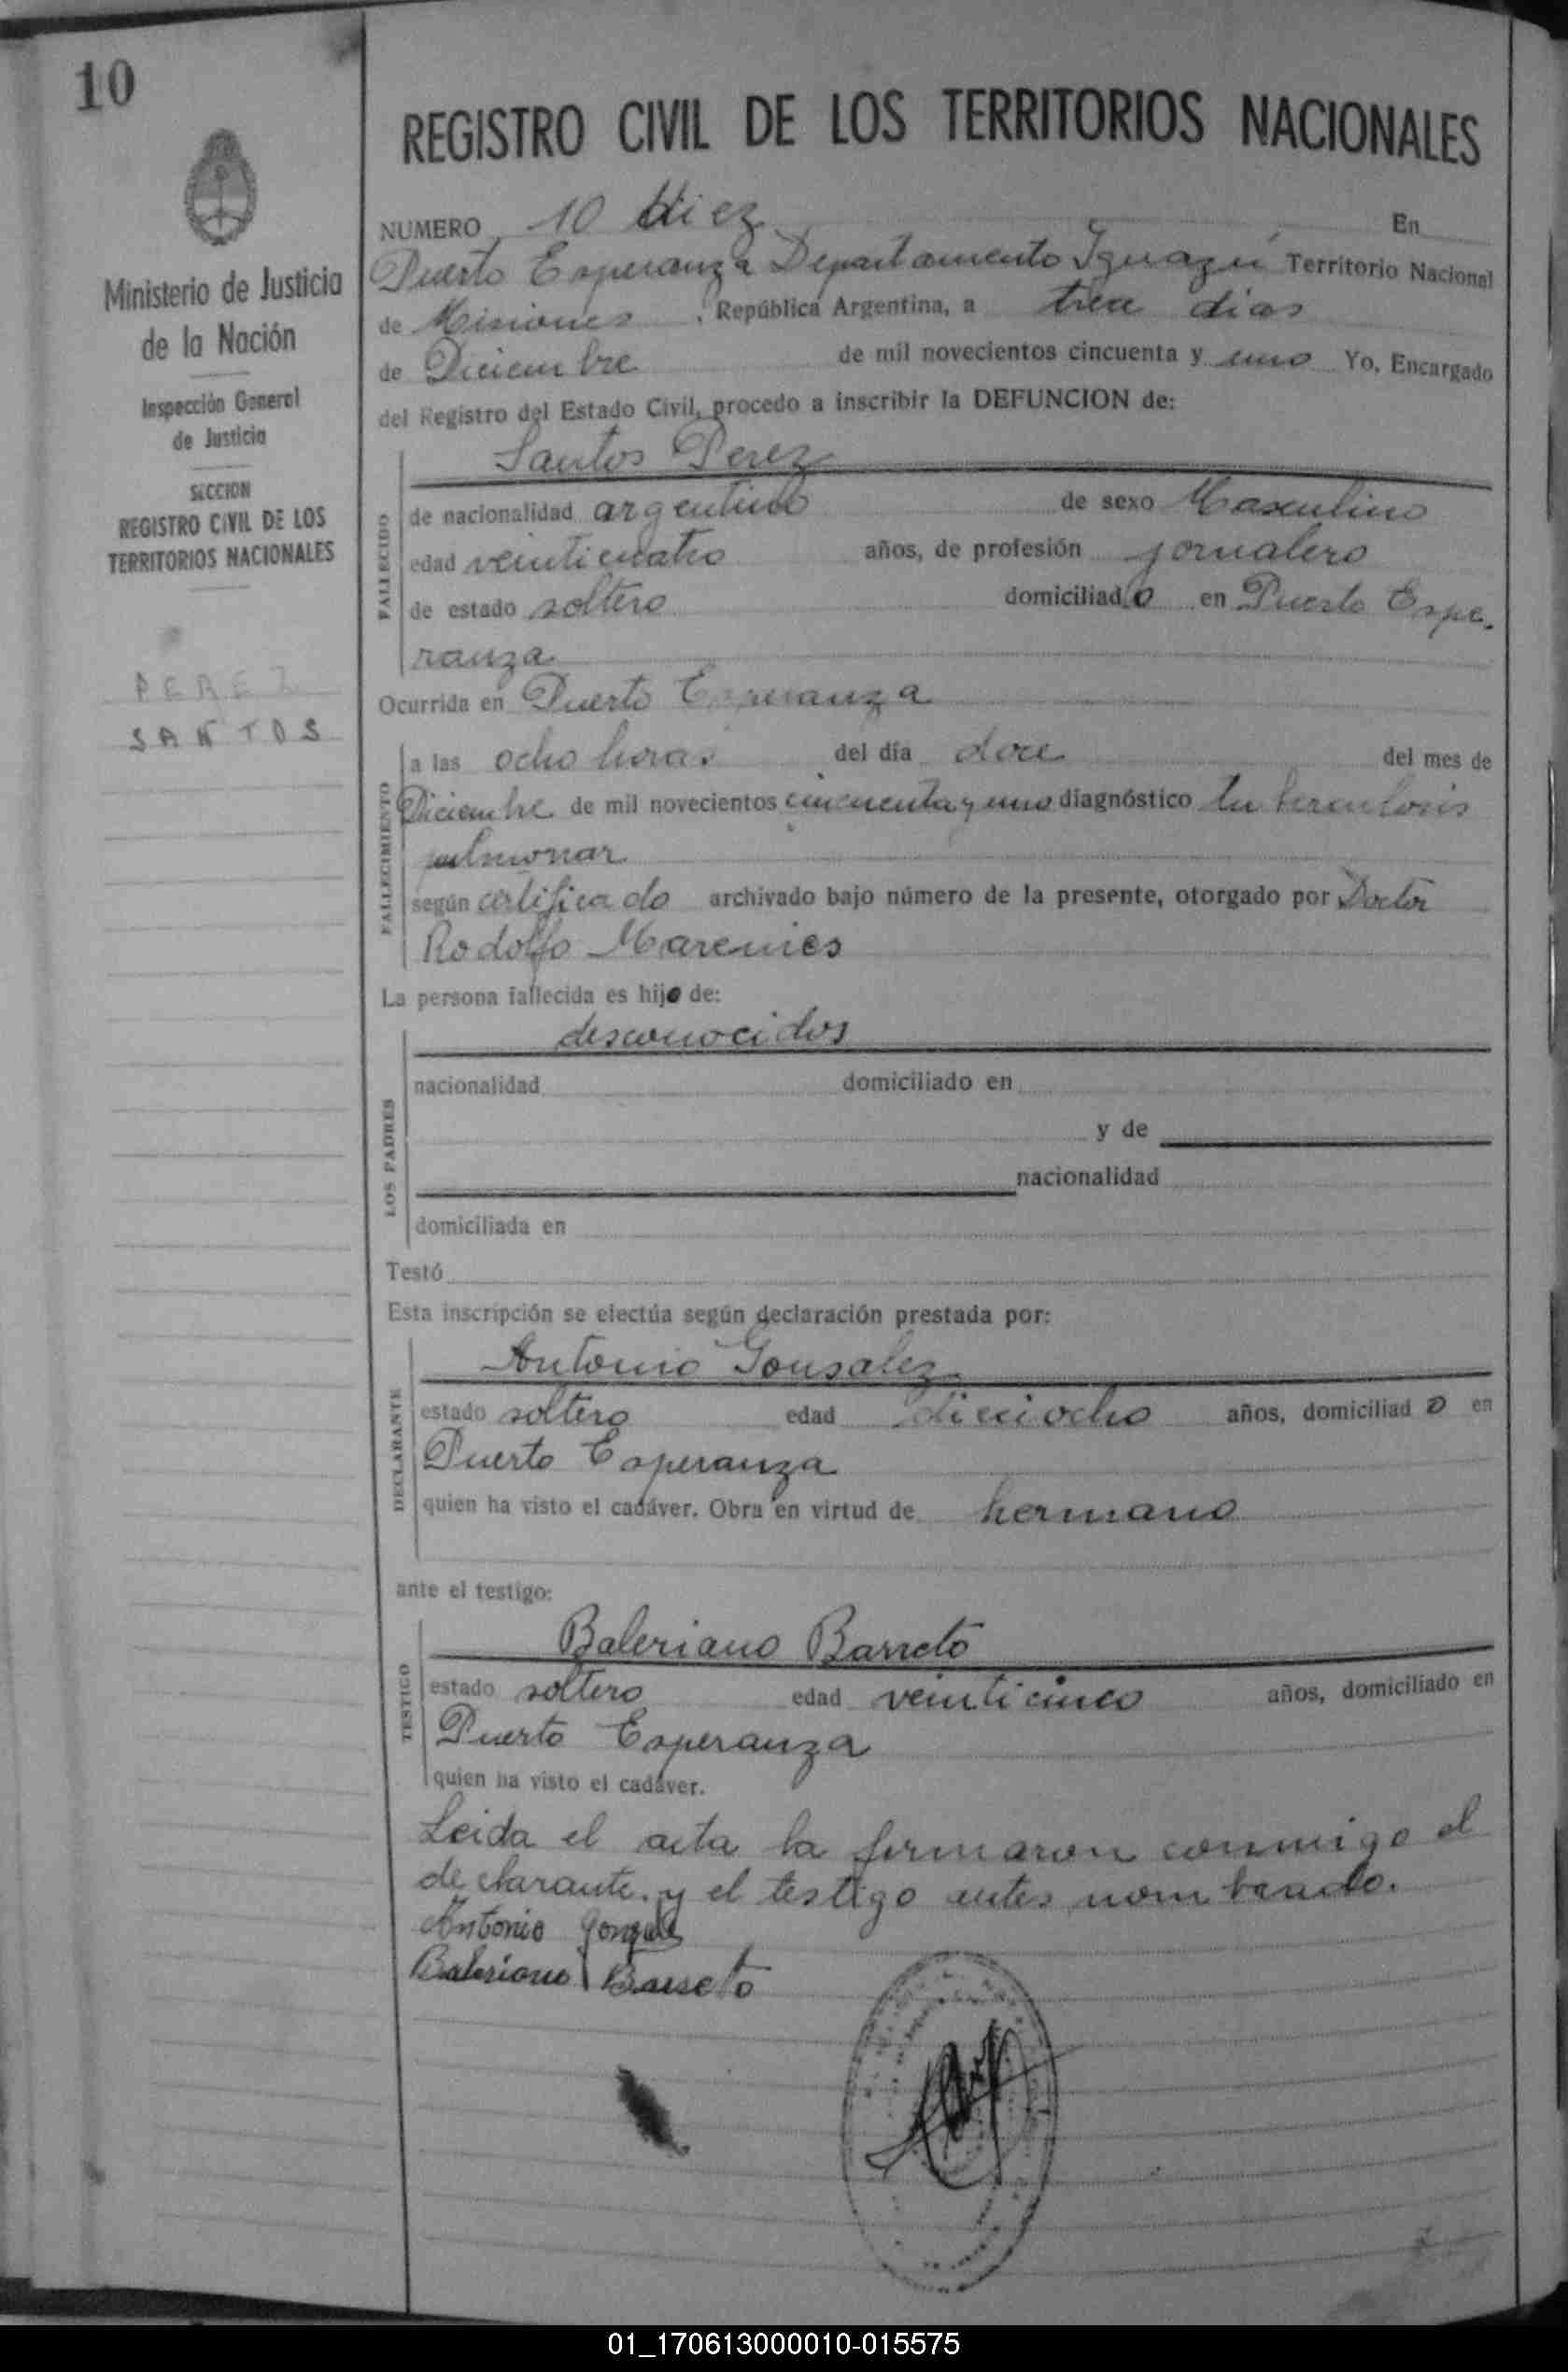 10
Ministerio de Justicia
de la Nación
Inspección General
de Justicia
SECCION
REGISTRO CIVIL DE LOS
TERRITORIOS NACIONALES
PEREZ
SANTOS
REGISTRO CIVIL DE LOS TERRITORIOS NACIONALES
NUMERO 10 diez En
Puerto Esperanza Departamento Iguazú Territorio Nacional
de Misiones, República Argentina, a trece dias
de Diciembre de mil novecientos cincuenta y uno Yo, Encargado
del Registro del Estado Civil, procedo a inscribir la DEFUNCION de:
Santos Perez
FALLECIDO
de nacionalidad argentino de sexo Masculino
edad veinticuatro años, de profesión jornalero
de estado soltero domiciliado en Puerto Espe-
ranza
Ocurrida en Puerto Esperanza
FALLECIMIENTO
a las ocho horas del día doce del mes de
Diciembre de mil novecientos cincuenta y uno diagnóstico tuberculosis
pulmonar
según certificado archivado bajo número de la presente, otorgado por Doctor
Rodolfo
La persona fallecida es hijo de:
desconocidos
LOS PADRES
nacionalidad domiciliado en
y de
nacionalidad
domiciliada en
Testó
Esta inscripción se efectúa según declaración prestada por:
Antonio Gonsalez
DECLARANTE
estado soltero edad dieciocho años, domiciliado en
Puerto Esperanza
quien ha visto el cadáver. Obra en virtud de hermano
ante el testigo:
Baleriano Barreto
TESTIGO
estado soltero edad veinticinco años, domiciliado en
Puerto Esperanza
quien ha visto el cadáver.
Leida el acta la firmaron conmigo el
declarante y el testigo antes nombrado.
Antonio
Baleriano Barreto
01_170613000010-015575